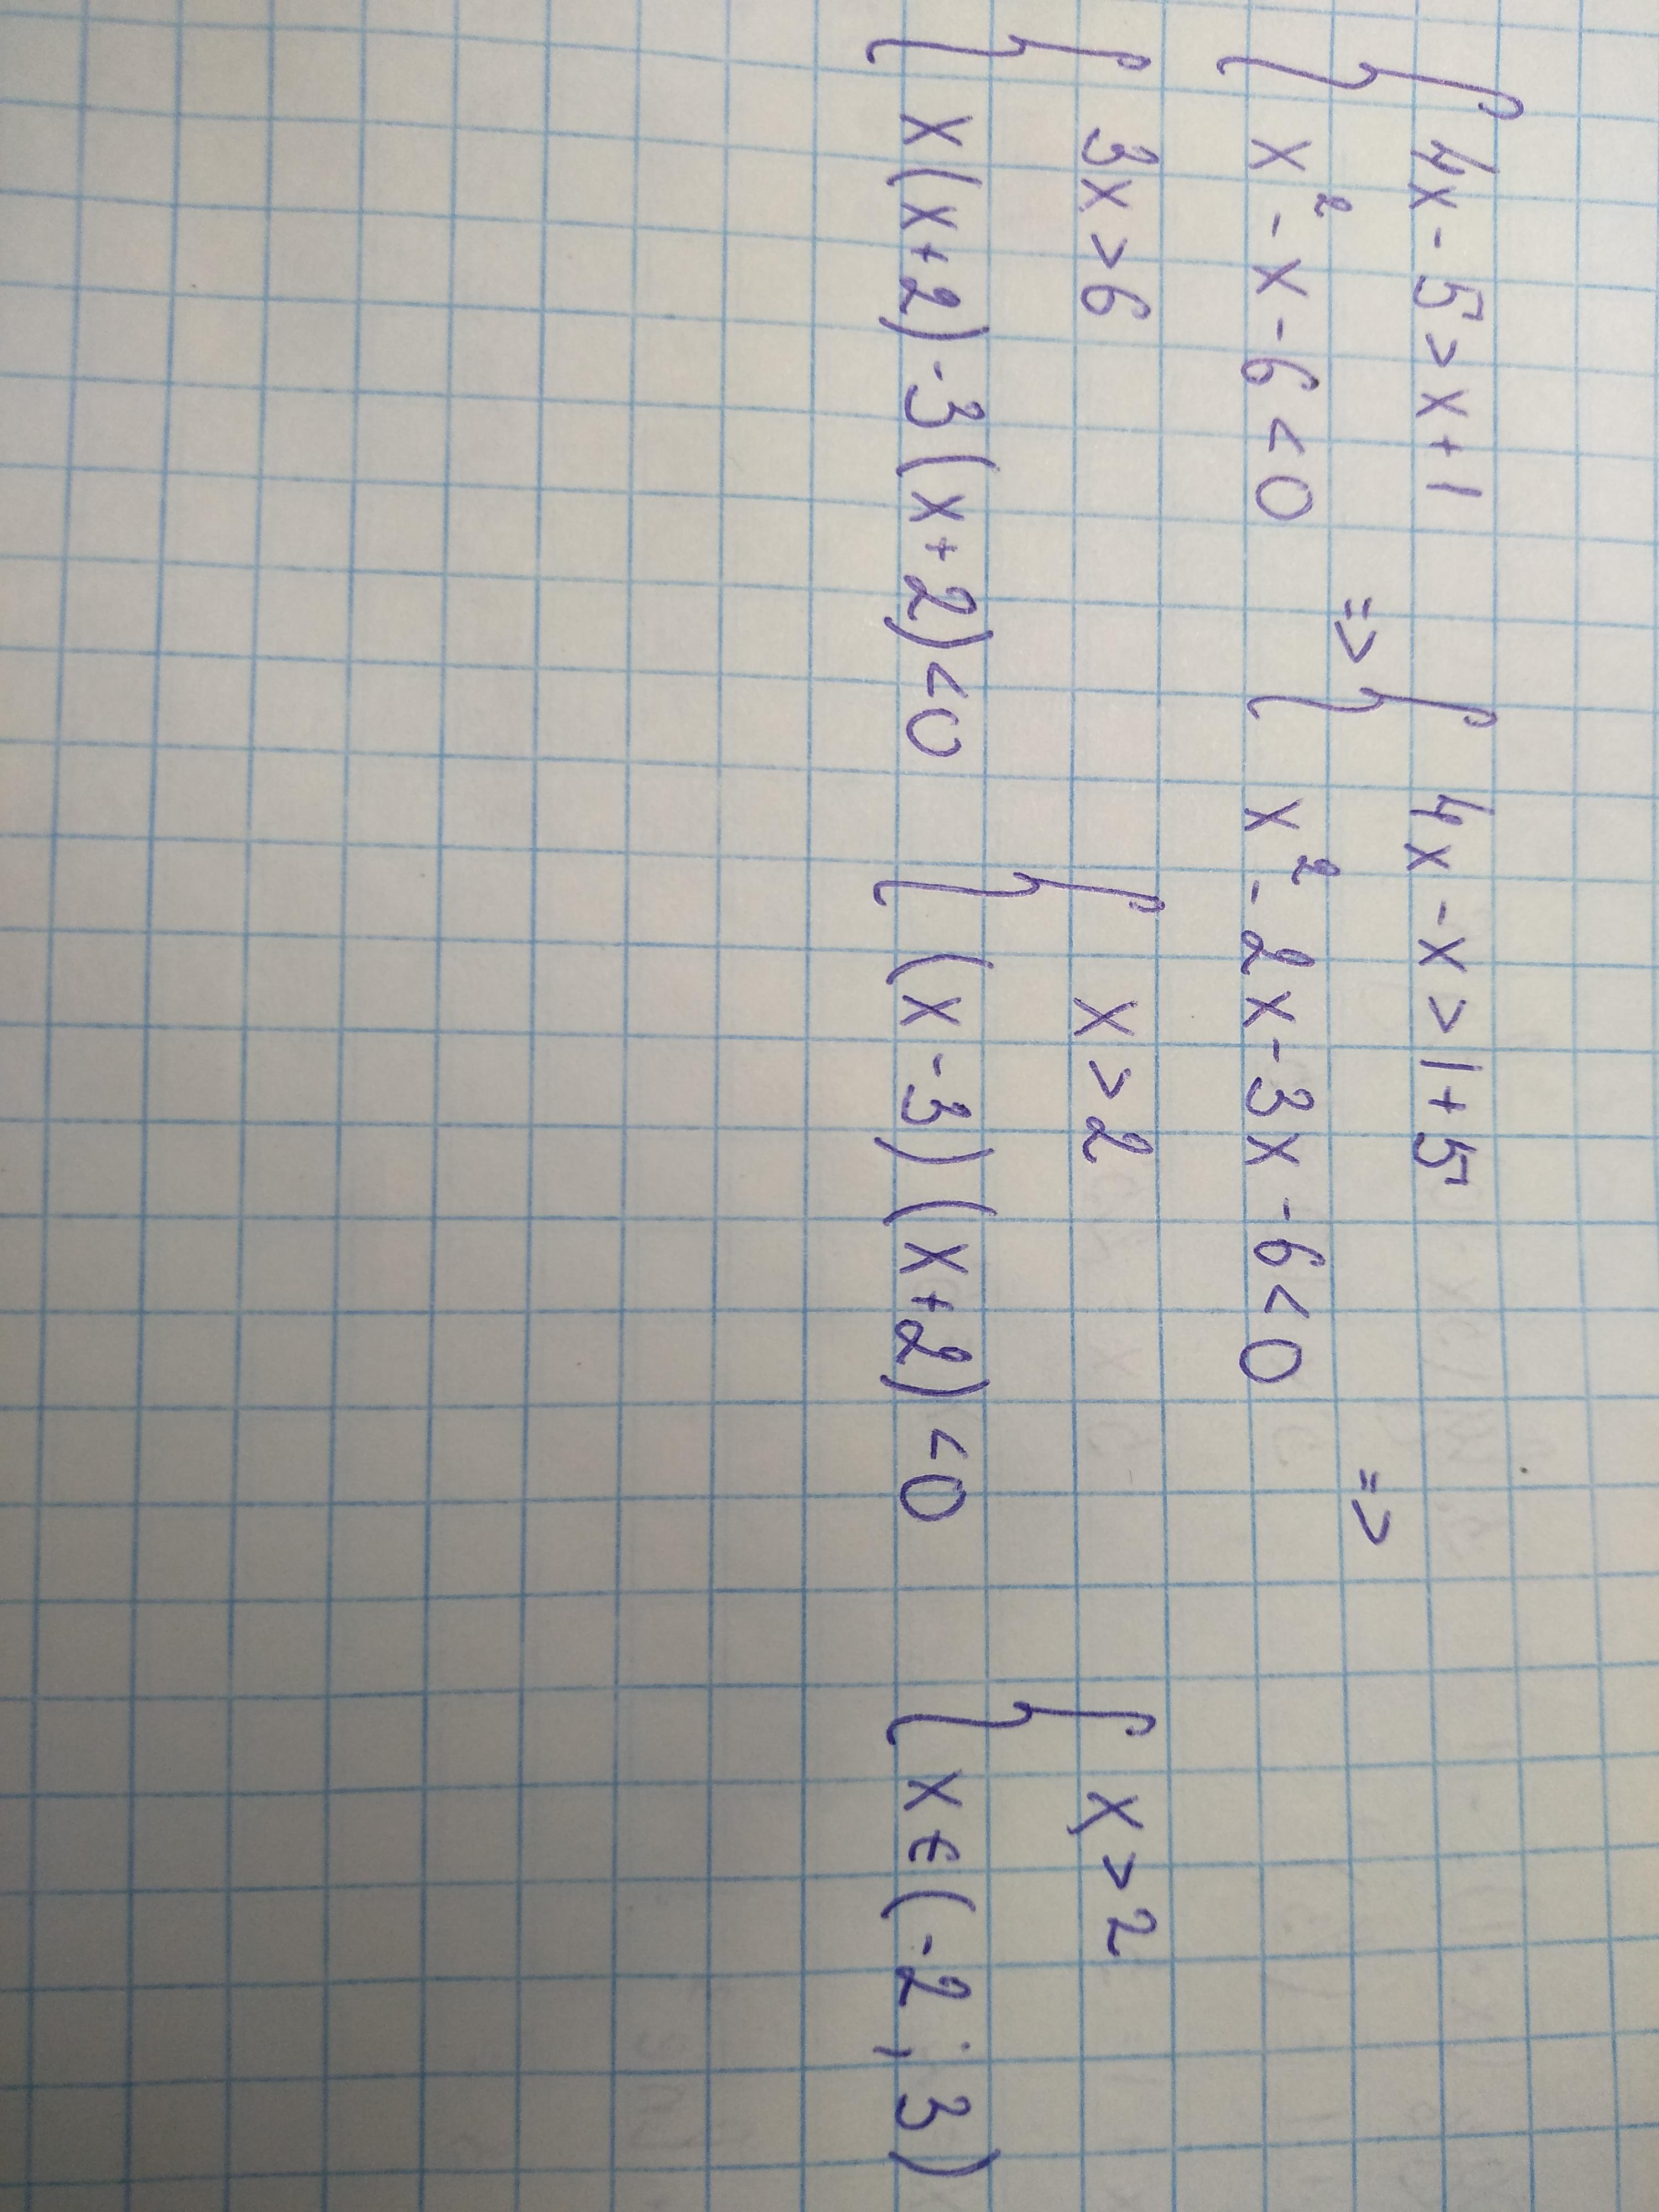 { 4x - 5 > x + 1
{ x² - x - 6 < 0 => { 4x - x > 1 + 5
{ x² - 2x - 3x - 6 < 0 =>
{ 3x > 6
{ x(x+2) - 3(x+2) < 0
{ x > 2
{ (x - 3)(x+2) < 0
{ x > 2
{ x ∈ (-2; 3)